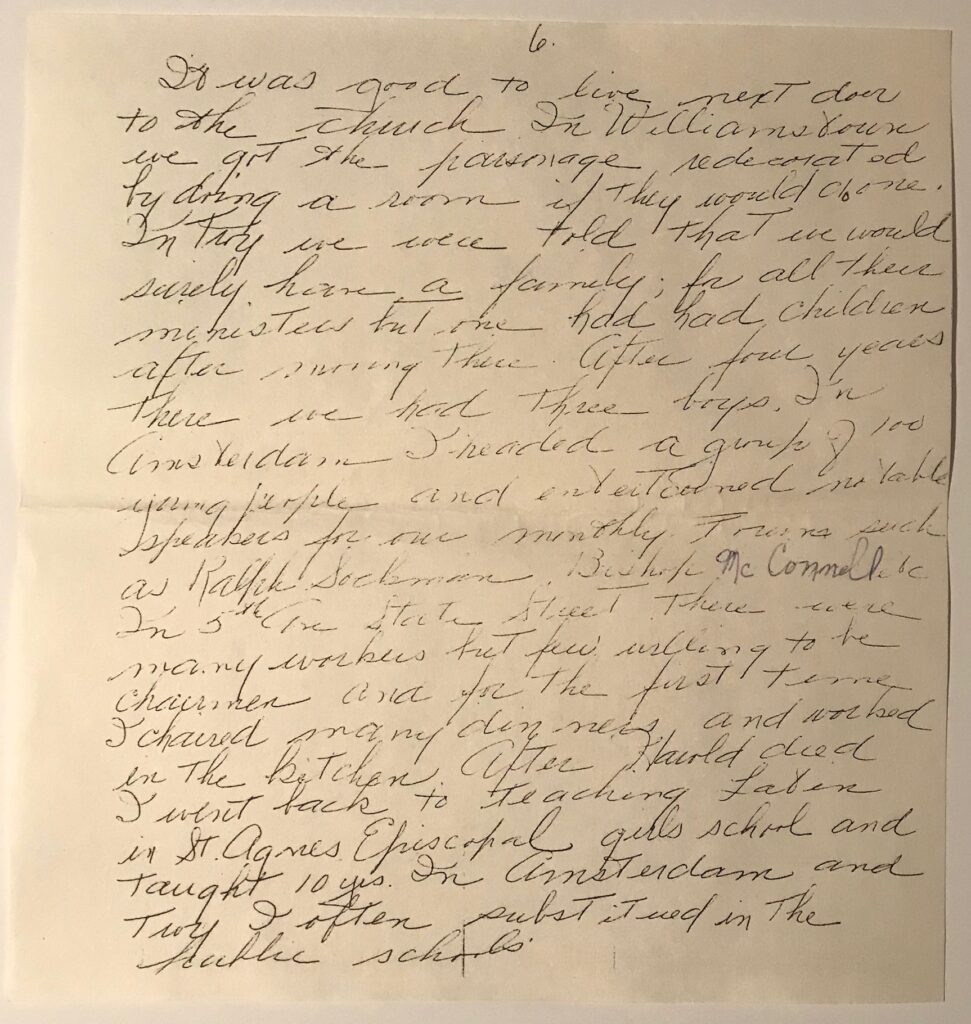 6.
It was good to live next door
to the church. In Williamstown
we got the parsonage redecorated
by doing a room if they would do one.
In Troy we were told that we would
surely have a family; for all their
ministers but one had had children
after moving there. After four years
there we had three boys. In
Amsterdam I headed a group of 100
young people and entertained notable
speakers for our monthly Forums such
as Ralph Sockman, Bishop McConnell etc
In 5th Ave State Street there were
many workers but few willing to be
chairmen and for the first time
I chaired many dinners and worked
in the kitchen. After Harold died
I went back to teaching Latin
in St. Agnes Episcopal girls school and
taught 10 yrs. In Amsterdam and
Troy I often substitued in the
public schools.